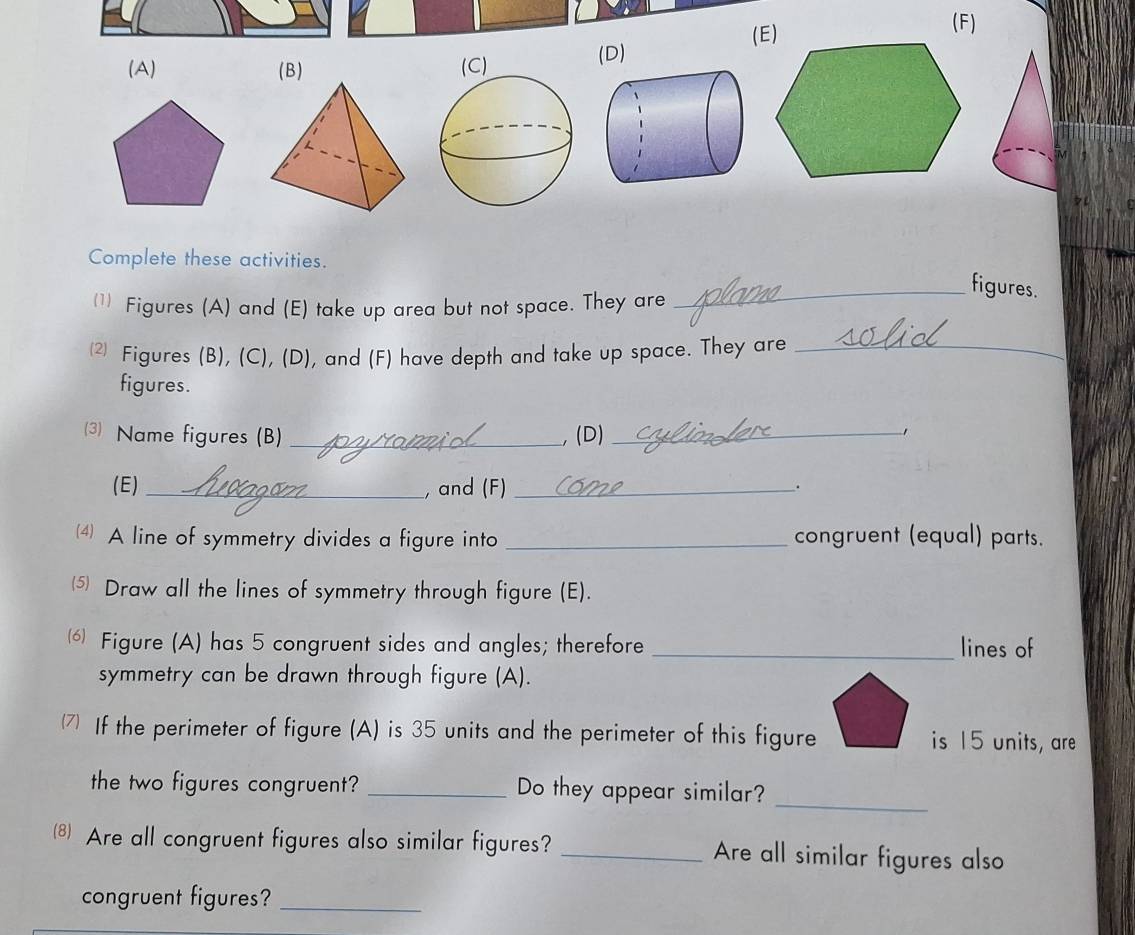 (A) (B) (C) (D) (E) (F)
Complete these activities.
(1) Figures (A) and (E) take up area but not space. They are plane figures.
(2) Figures (B), (C), (D), and (F) have depth and take up space. They are solid
figures.
(3) Name figures (B) pyramid, (D) cylinder,
(E) hexagon, and (F) cone.
(4) A line of symmetry divides a figure into ____ congruent (equal) parts.
(5) Draw all the lines of symmetry through figure (E).
(6) Figure (A) has 5 congruent sides and angles; therefore ____ lines of
symmetry can be drawn through figure (A).
(7) If the perimeter of figure (A) is 35 units and the perimeter of this figure is 15 units, are
the two figures congruent? ____ Do they appear similar? ____
(8) Are all congruent figures also similar figures? ____ Are all similar figures also
congruent figures? ____